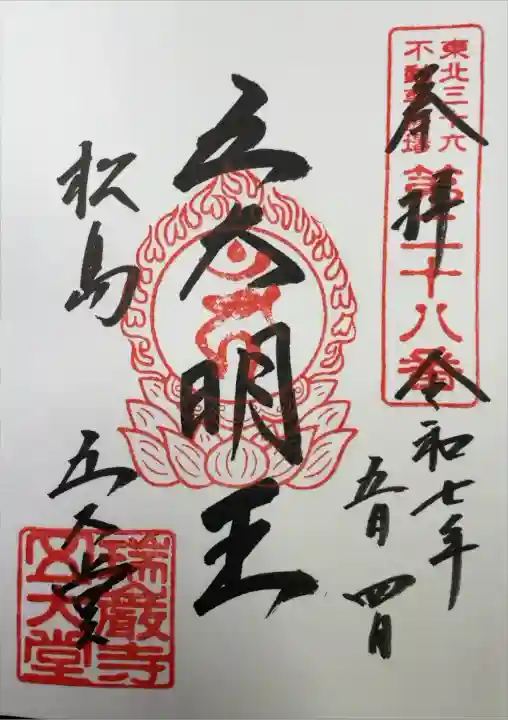 奉拝
東北三十六
不動尊霊場
第二十八番
令和七年
五月四日
五大明王
松島
五大堂
瑞巌寺
五大堂